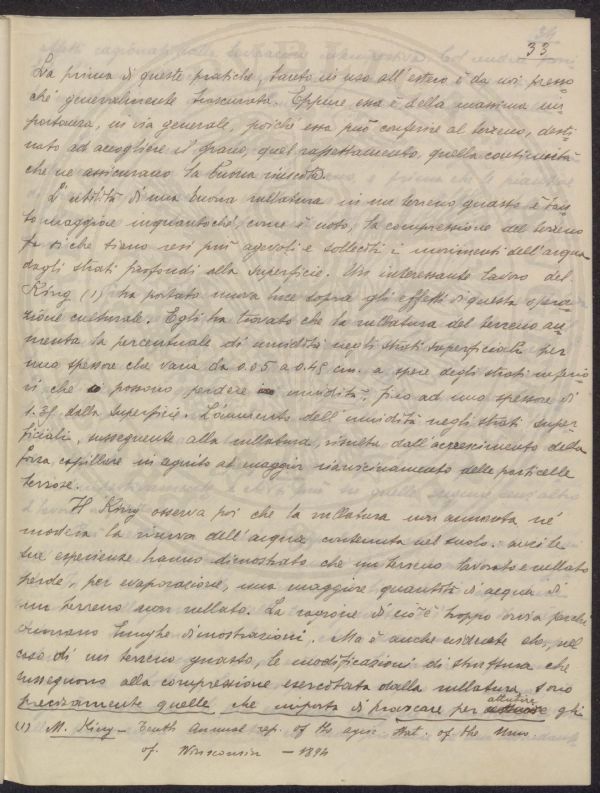 33
La prima di queste pratiche, tanto in uso all'estero è da noi presso=
chè generalmente trascurata. Eppure essa è della massima im
portanza, in via generale, poiché essa può conferire al terreno, desti=
nato ad accogliere il grano, quel rassettamento, quella continuità
che ne assicurano la buona riuscita.
L'utilità di una buona rullatura in un terreno guasto è tan=
to maggiore inquantochè, come è noto, la compressione del terreno
fa sì che siano resi più agevoli e solleciti i movimenti dell'acqua
dagli strati profondi alla superficie. Un interessante lavoro del
King (1) ha portato nuova luce sopra gli effetti di questa opera=
zione culturale. Egli ha trovato che la rullatura del terreno au
menta la percentuale di umidità negli strati superficiali per
uno spessore che varia da 0.05 a 0.45 cm. a spese degli strati inferio=
ri che possono perdere umidità, fino ad uno spessore di
1.37 dalla superficie. L'aumento dell'umidità negli strati super=
ficiali, susseguente alla rullatura, risulta dall'accrescimento della
forza capillare in seguito al maggior riavvicinamento delle particelle
terrose.
Il King osserva poi che la rullatura non aumenta nè
modera la riserva dell'acqua contenuta nel suolo. anzi le
sue esperienze hanno dimostrato che un terreno lavorato e rullato
perde, per evaporazione, una maggiore quantità di acqua di
un terreno non rullato. La ragione di ciò è troppo ovvia perchè
occorrano lunghe dimostrazioni. Ma è anche evidente che, nel
caso di un terreno guasto, le modificazioni di struttura che
susseguono alla compressione esercitata dalla rullatura, sono
precisamente quelle che importa di provocare per attutire gli
(1) M. King - Tenth Annual rep. of the agric. Stat. of the Univ
of Winsconsin - 1894